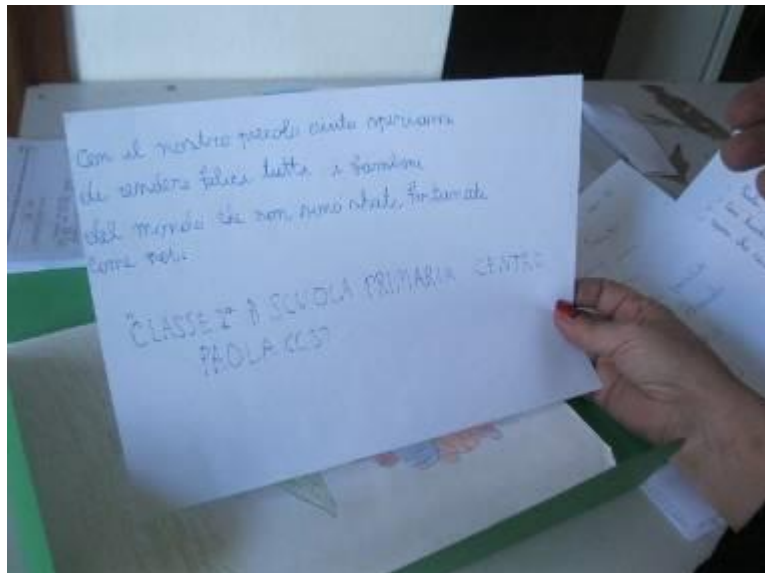 Con il nostro piccolo aiuto speriamo
di rendere felici tutti i bambini
del mondo che non sono stati fortunati
come noi.
"CLASSE 2ª B SCUOLA PRIMARIA CENTRO
PAOLA (CS)"